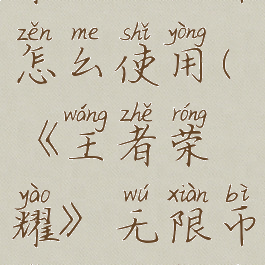 zěn me shǐ yòng
怎么使用(
wáng zhě róng
《王者荣
yào wú xiàn bì
耀》 无限币